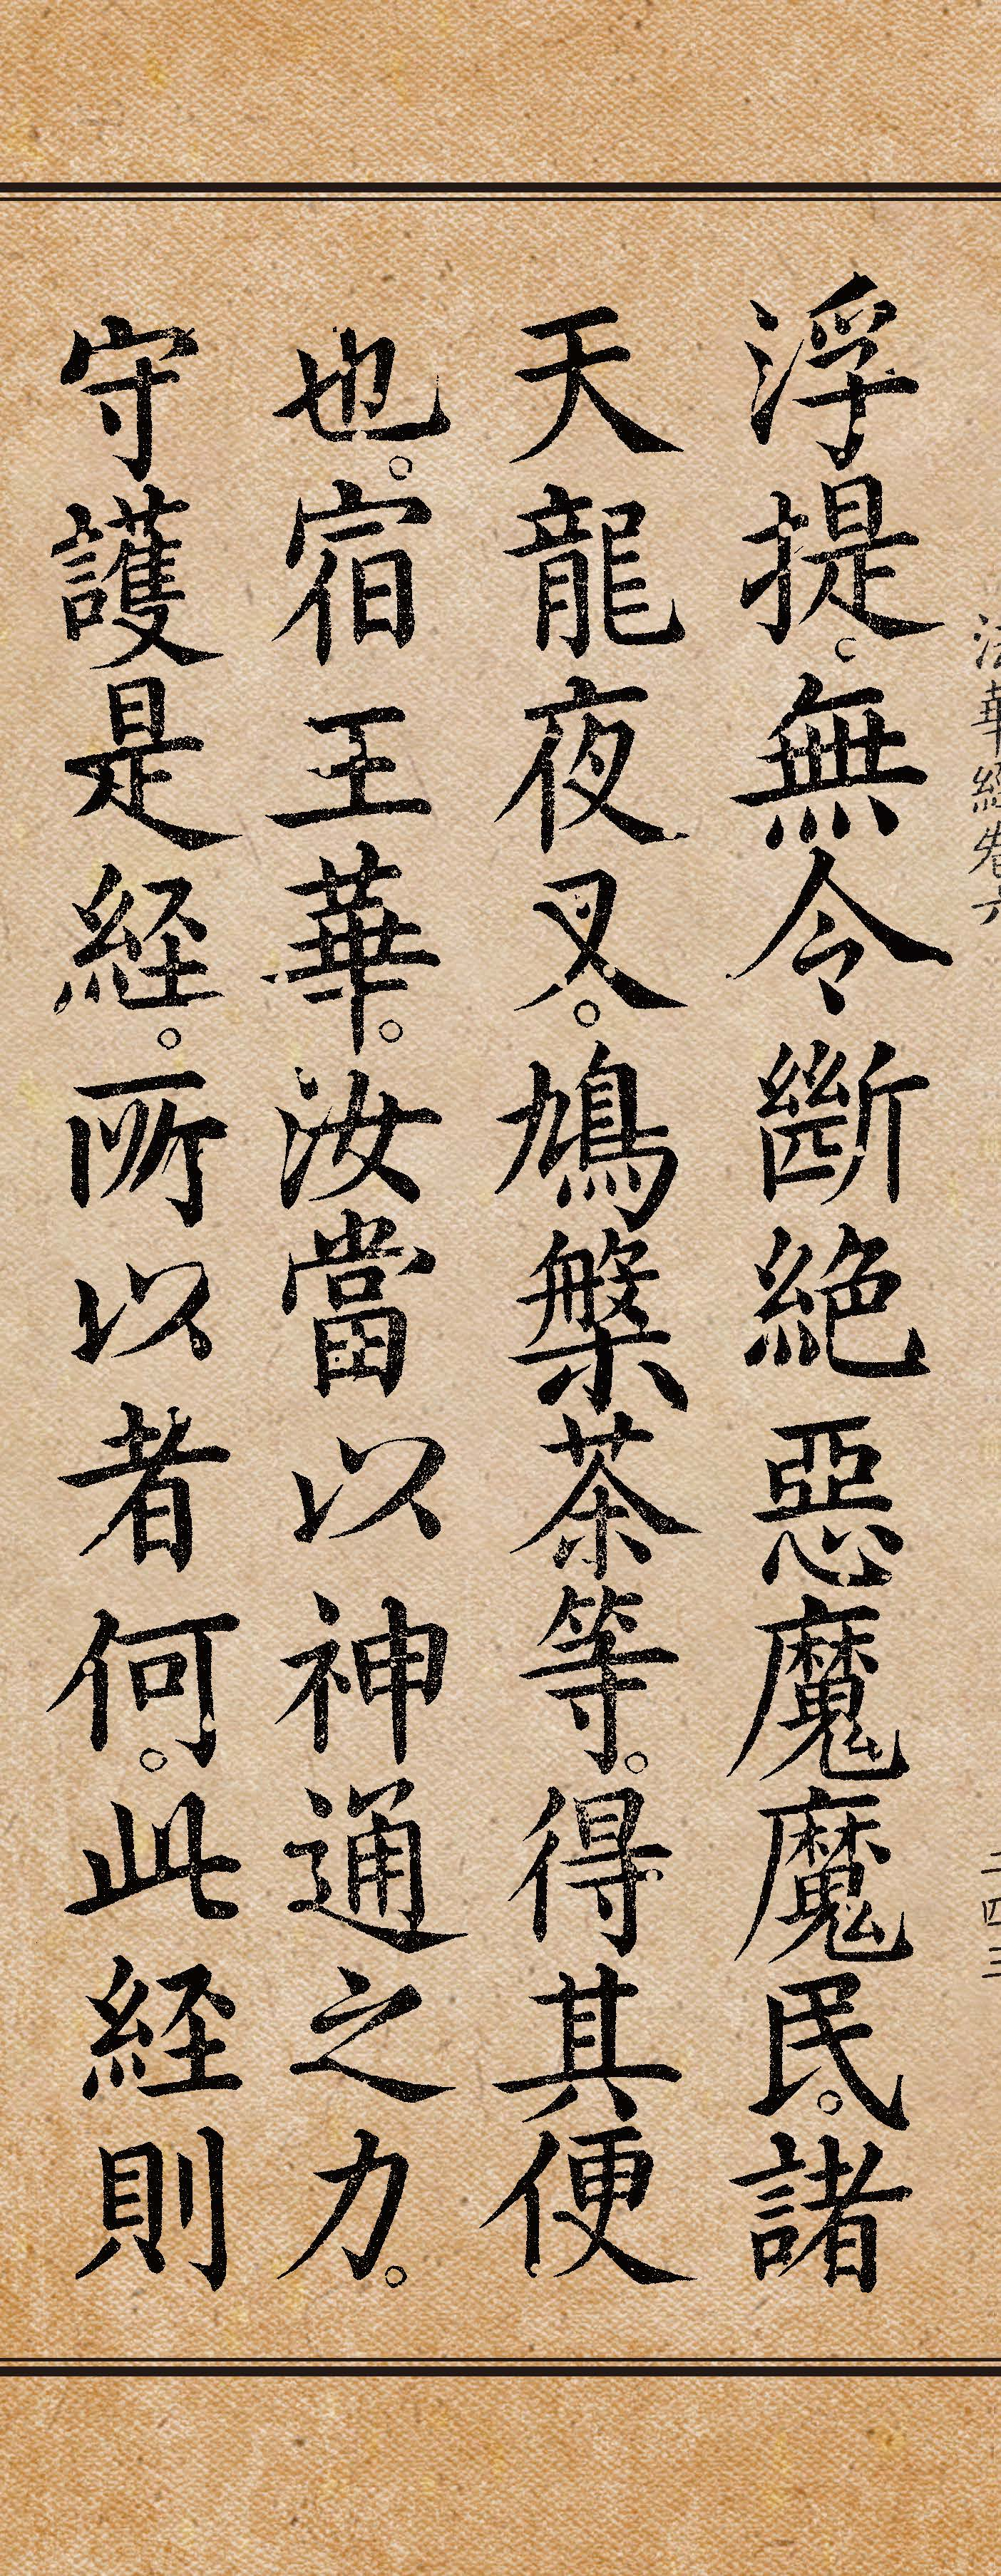 法華經卷六
二四三
浮提。無令斷絕惡魔魔民。諸
天龍夜叉。鳩槃茶等。得其便
也。宿王華。汝當以神通之力。
守護是経。所以者何。此経則